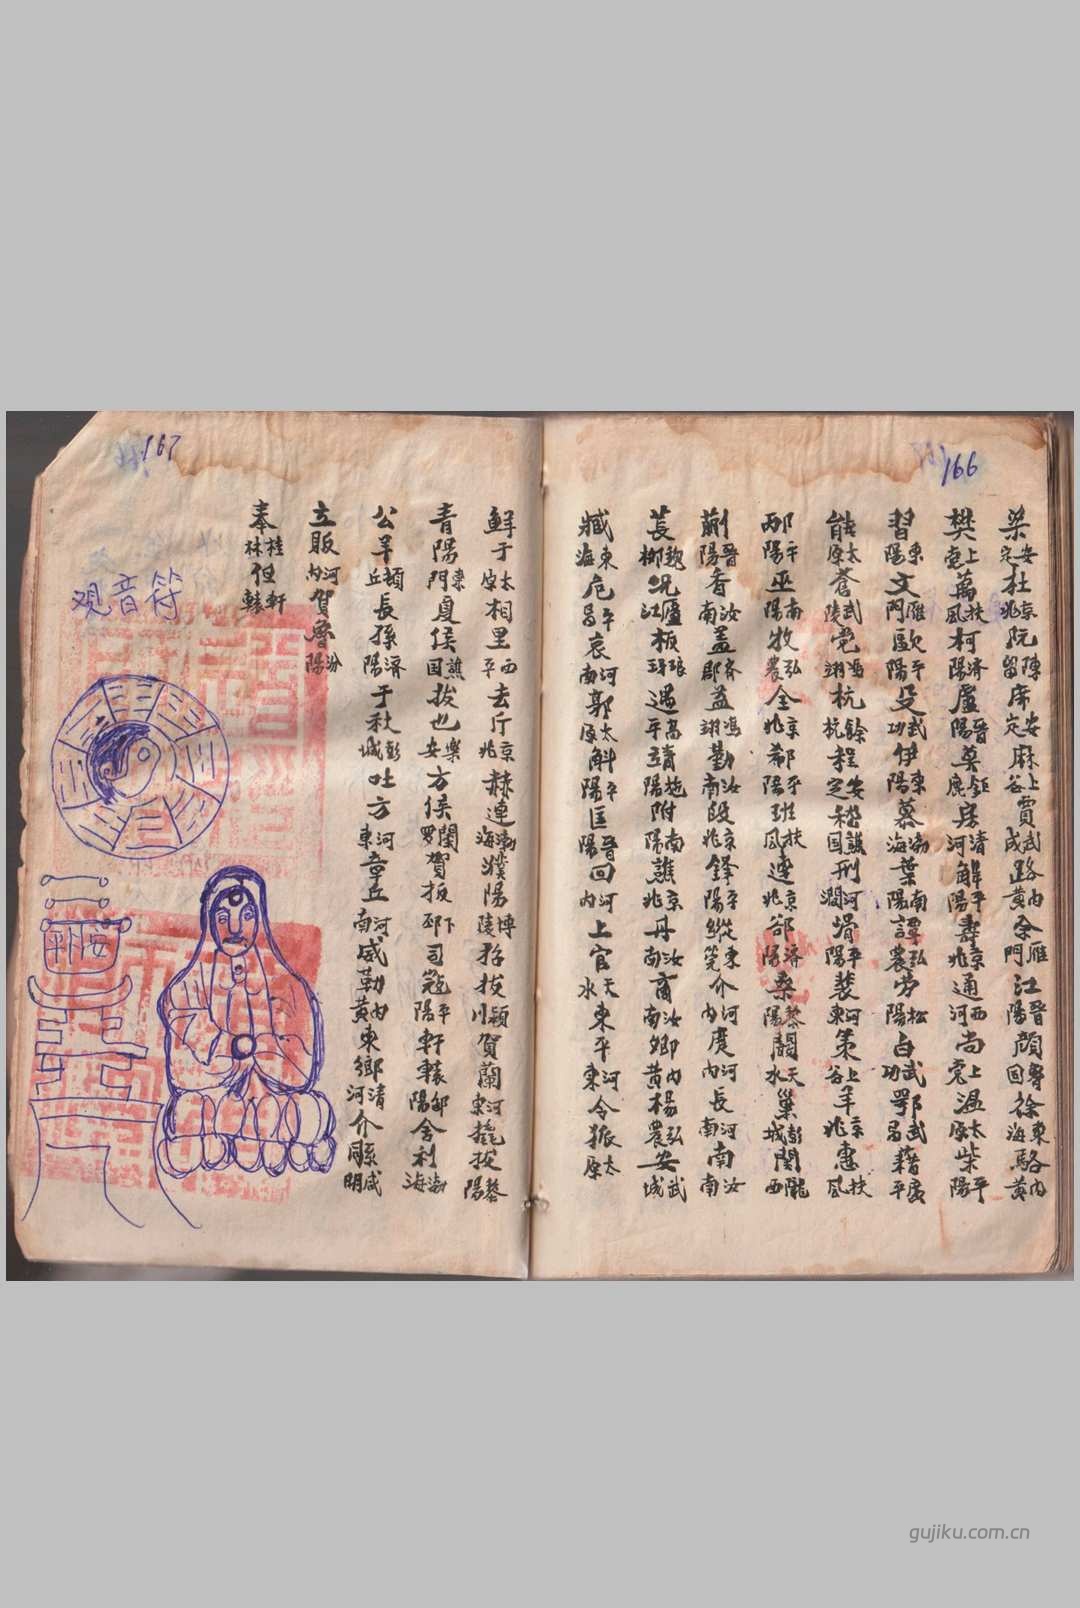 166
梁安定杜京兆阮陳留席安定麻上谷賈武威路內黃令雁門江晉陽顏魯國徐東海駱內黃
樊上党萬扶風柯濟陽盧晉陽莫鉅鹿房清河解平陽壽京兆通西河尚上党温太原柴平陽
習東陽文雁門歐平陽殳武功伊東陽慕渤海葉南陽譚弘農勞松陽占武功鄂武昌藉廣平
能太原蒼武陵党馮翊杭餘杭程安定嵇譙国刑河澗滑平陽裴河東策上谷羊京兆惠扶風
邴平陽巫南陽牧弘農全京兆郗平陽班扶風連京兆郤濟陽桑黎陽關天水巢彭城関隴西
蒯晉陽香汝南蓋齊郡益馮翊勤汝南段京兆鋒平陽縱東莞介河內度河內長河南南汝南
萇魏郡況廬江板琅玡遇高平靖南陽附南陽譙京兆丹汝南商汝南卿內黃楊弘農安武城
臧東海危平昌哀河南郭太原斛平陽匡晉陽回河內上官天水東平河東令狐太原
167
鮮于太原相里西平去斤京兆赫連渤海濮陽博陵孫拔潁川賀蘭河東拔黎陽
青陽東門夏侯譙国拔也樂安方侯閣罗賀扳下邳司寇平陽軒轅郃陽舍利渤海
公羊頓丘長孫濟陽于秋彭城吐方河東章丘河南威勒內黃東鄉清河介豚咸明
立販河內賀魯汾陽
奉桂林但軒轅
观音符
平安
gujiku.com.cn